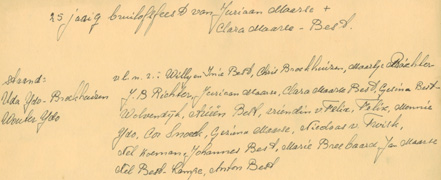 25 jaarig bruiloftfeest van Juriaan Maarse +
Clara Maarse - Best.
staand:
Uda Ydo-Broekhuizen
Wouter Ydo
v.l.n.r.: Willy en Best, Chris Broekhuizen, Maartje Richter
J.B. Richter, Juriaan Maarse, Clara Maarse Best, Gerina Best-
Wolvendijk, Best, vriendin v Felix, Felix, Mennie
Ydo, Cor Snoek, Gerina Maarse, Nicolaas v. Twisk,
Nel Koeman, Johannes Best, Marie Maarse
Nel Best-Kampe, Anton Best